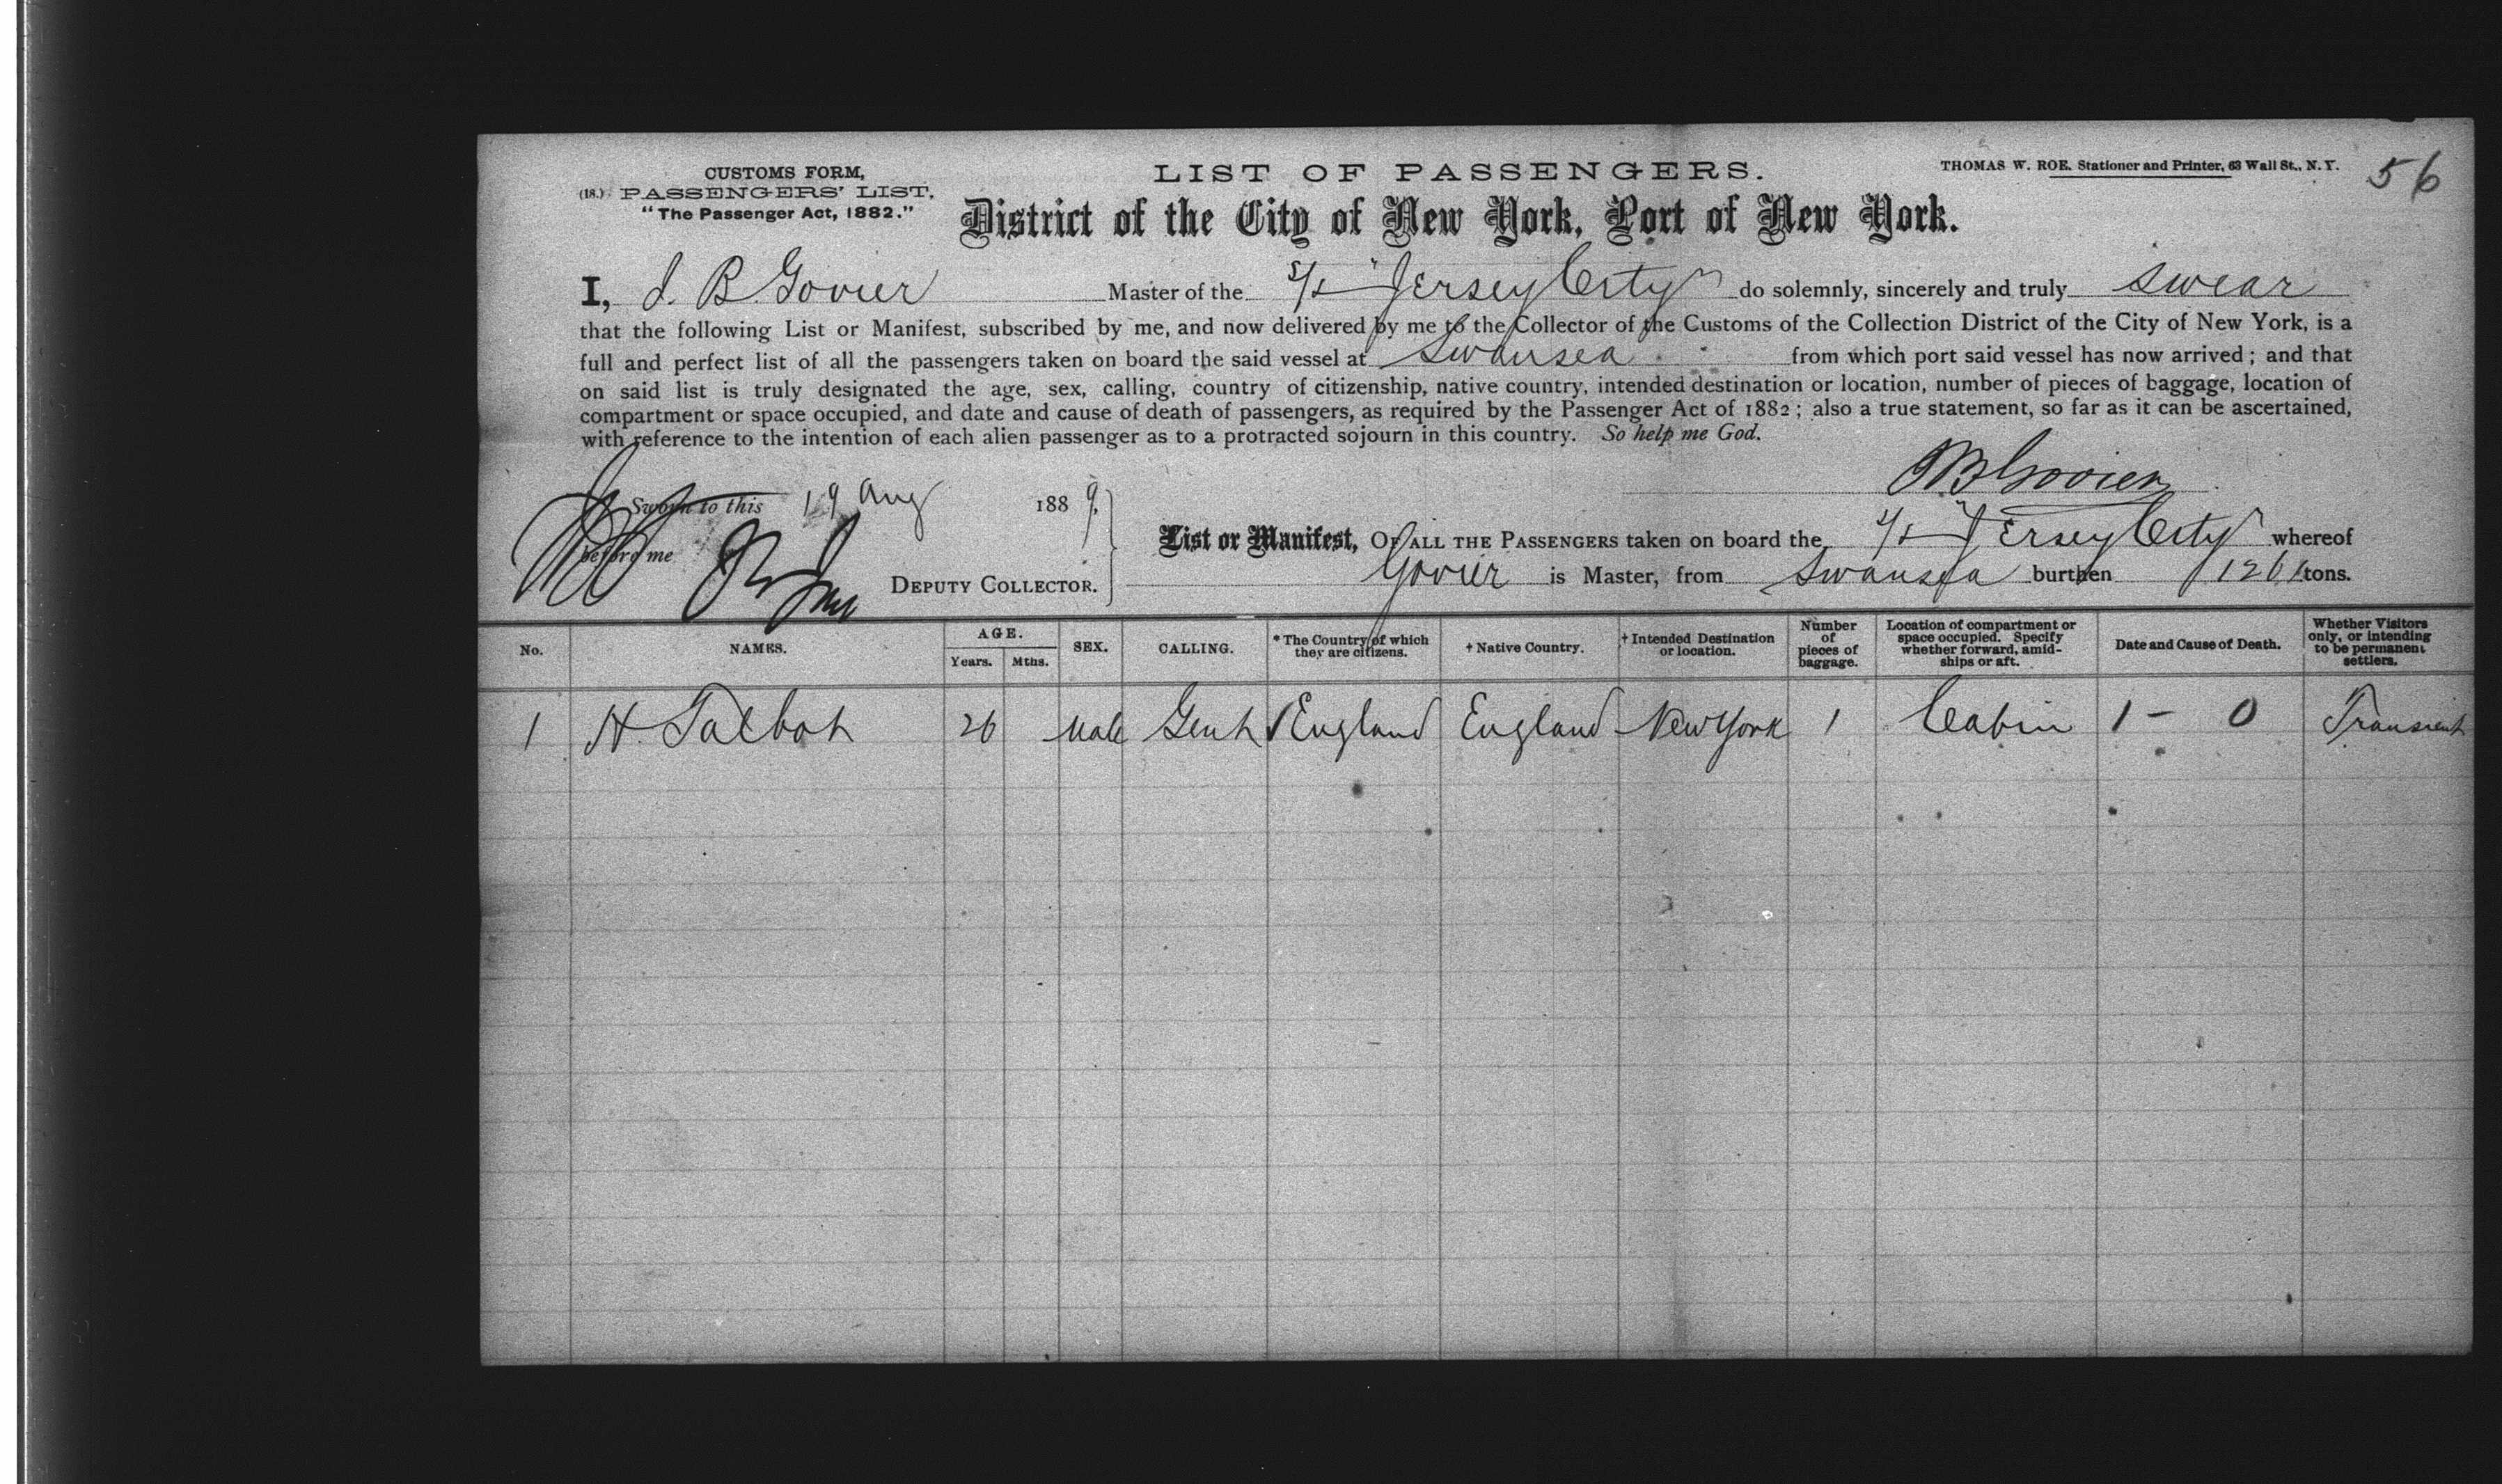 CUSTOMS FORM,
(18.) PASSENGERS' LIST,
"The Passenger Act, 1882."
LIST OF PASSENGERS.
THOMAS W. ROE. Stationer and Printer, 63 Wall St., N.Y.
56
District of the City of New York, Port of New York.
I, J. B. Govier Master of the S/S "Jersey City" do solemnly, sincerely and truly swear
that the following List or Manifest, subscribed by me, and now delivered by me to the Collector of the Customs of the Collection District of the City of New York, is a
full and perfect list of all the passengers taken on board the said vessel at Swansea from which port said vessel has now arrived; and that
on said list is truly designated the age, sex, calling, country of citizenship, native country, intended destination or location, number of pieces of baggage, location of
compartment or space occupied, and date and cause of death of passengers, as required by the Passenger Act of 1882; also a true statement, so far as it can be ascertained,
with reference to the intention of each alien passenger as to a protracted sojourn in this country. So help me God.
JB Govier
Sworn to this 19 Aug 1889.
before me
DEPUTY COLLECTOR.
List or Manifest, OF ALL THE PASSENGERS taken on board the S/S "Jersey City" whereof
Govier is Master, from Swansea burthen tons.
No. NAMES. AGE. Years. Mths. SEX. CALLING. * The Country of which they are citizens. † Native Country. † Intended Destination or location. Number of pieces of baggage. Location of compartment or space occupied. Specify whether forward, amid-ships or aft. Date and Cause of Death. Whether Visitors only, or intending to be permanent settlers.
1 H. Talbot 26 Male Gent England England New York 1 Cabin 1 - 0 Transient